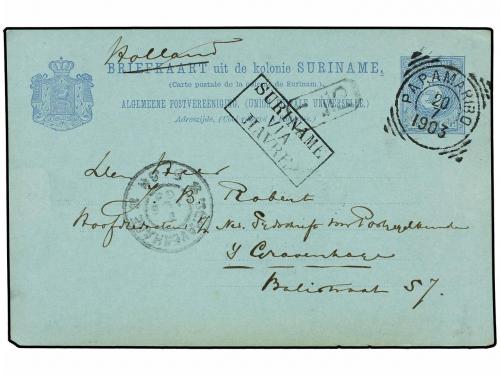 Holland
BRIEFKAART uit de kolonie SURINAME,
(Carte postale de la de Surinam.)
ALGEMEENE POSTVEREENIGING. (UNION POSTALE UNIVERSELLE.)
Adreszijde.
SURINAME
VIA
HAVRE
PARAMARIBO
20
7
1903
Den Heer
Robert
Hoofdredacteur Ned. Tijdschrift voor Postzegelkunde
's Gravenhage
Balistraat 57.